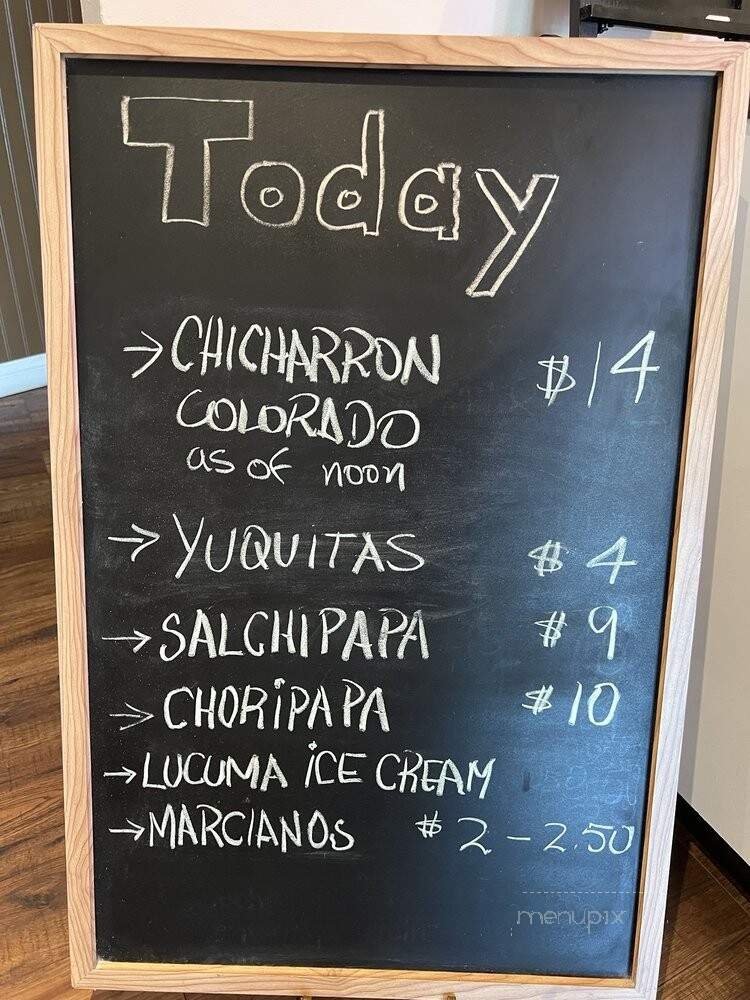 Today
→ CHICHARRON $14
COLORADO
as of noon
→ YUQUITAS $4
→ SALCHIPAPA $9
→ CHORiPAPA $10
→ LUCUMA iCE CREAM
→ MARCIANOS $2 - 2.50
menupix